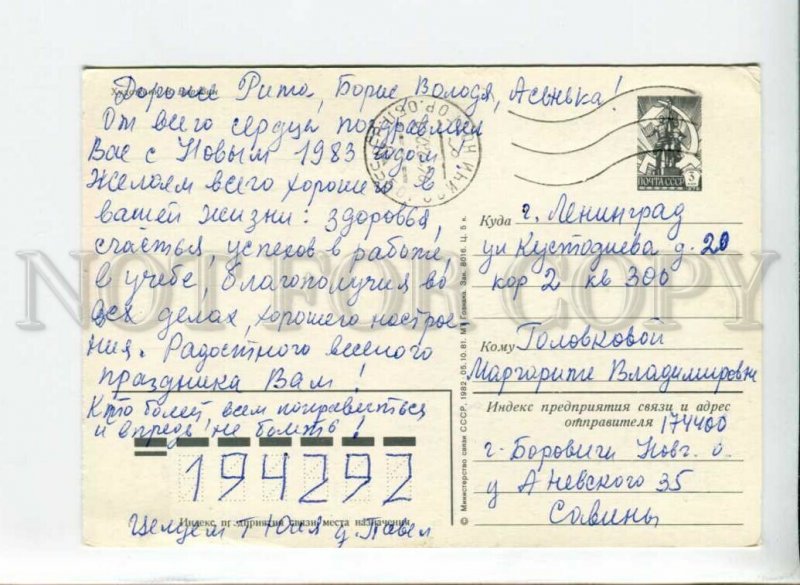 Дорогие Рита, Борис Володя, Асенька!
От всего сердца поздравляем
Вас с Новым 1983 годом,
Желаем всего хорошего в
вашей жизни: здоровья,
счастья, успехов в работе,
в учебе, благополучия во
всех делах, хорошего настрое
ния. Радостного веселого
праздника Вам!
Кто болеет, всем поправиться
и впредь не болеть!
194292
Индекс предприятия связи места назначения
Целуем т Юля д. Павел
ПОЧТА СССР
3
Куда г. Ленинград
ул Кустодиева д. 20
кор 2 кв 300
Кому Головковой
Маргарите Владимировне
Индекс предприятия связи и адрес
отправителя 174400
г. Боровичи Новг. о.
у А Невского 35
Савины
© Министерство связи СССР, 1982 05.10.81. МТ Гознака. Зак. 8016. Ц. 5 к.
NOT FOR COPY